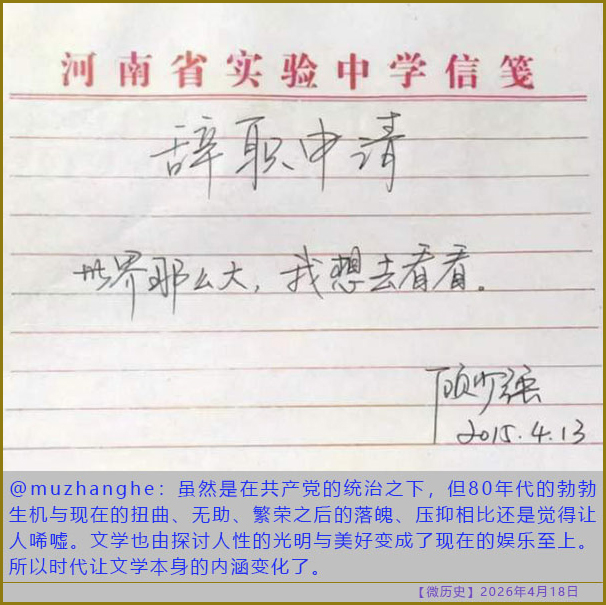 河南省实验中学信笺
辞职申请
世界那么大，我想去看看。
顾少强
2015.4.13
@muzhanghe：虽然是在共产党的统治之下，但80年代的勃勃
生机与现在的扭曲、无助、繁荣之后的落魄、压抑相比还是觉得让
人唏嘘。文学也由探讨人性的光明与美好变成了现在的娱乐至上。
所以时代让文学本身的内涵变化了。
【微历史】2026年4月18日